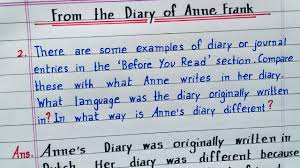 From the Diary of Anne Frank
2. There are some examples of diary or journal
entries in the 'Before You Read' section. Compare
these with what Anne writes in her diary.
What language was the diary originally written
in? In what way is Anne's diary different?
Ans. Anne's Diary was originally written in
Dutch. Her diary was different because